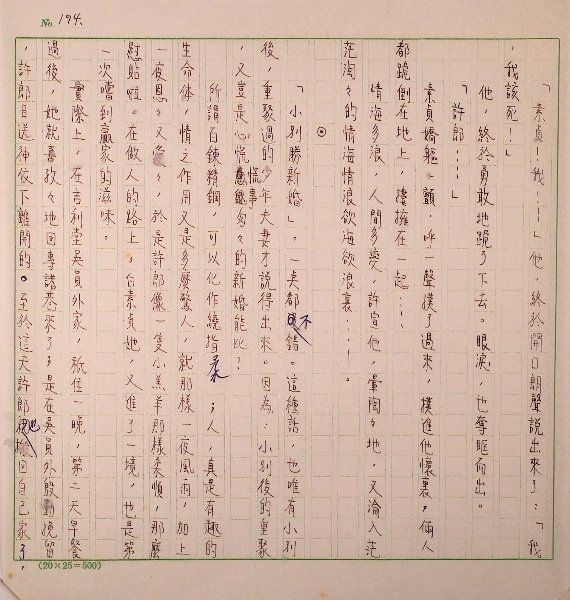 No. 194.
「素貞！我⋯⋯」他，終於開口朗聲說出來了：「我
，我該死！」
他，終於勇敢地跪了下去。眼淚，也奪眶而出。
「許郎⋯⋯」
素貞嬌軀一顫，呼一聲撲了過來，撲進他懷裏，倆人
都跪倒在地上，摟擁在一起⋯⋯
情海多浪，人間多變，許宣他，暈陶々地，又淪入茫
茫淘々的情海情浪欲海欲浪裏⋯⋯。
⊙
「小別勝新婚」。一點都不錯。這種話，也唯有小別
後，重聚過的少年夫妻才說得出來。因為：小別後的重聚
，又豈是心慌慌事匆々的新婚能比？
所謂百鍊精鋼，可以化作繞指柔；人，真是有趣的
生命体，情之作用又是多麼驚人，就那樣一夜風雨，加上
一夜恩々又愛々，於是許郎像一隻小羔羊那樣柔順，那麼
慰貼啦。在做人的路上，白素貞她，又進了一境，也是第
一次嚐到贏家的滋味。
實際上，在吉利堂吳員外家，祇住一晚，第二天早餐
過後，她就喜孜々地回專諸巷來了；是在吳員外殷勤挽留
，許郎目送神依下離開的。至於這天許郎他搬回自己家了，
(20×25=500)